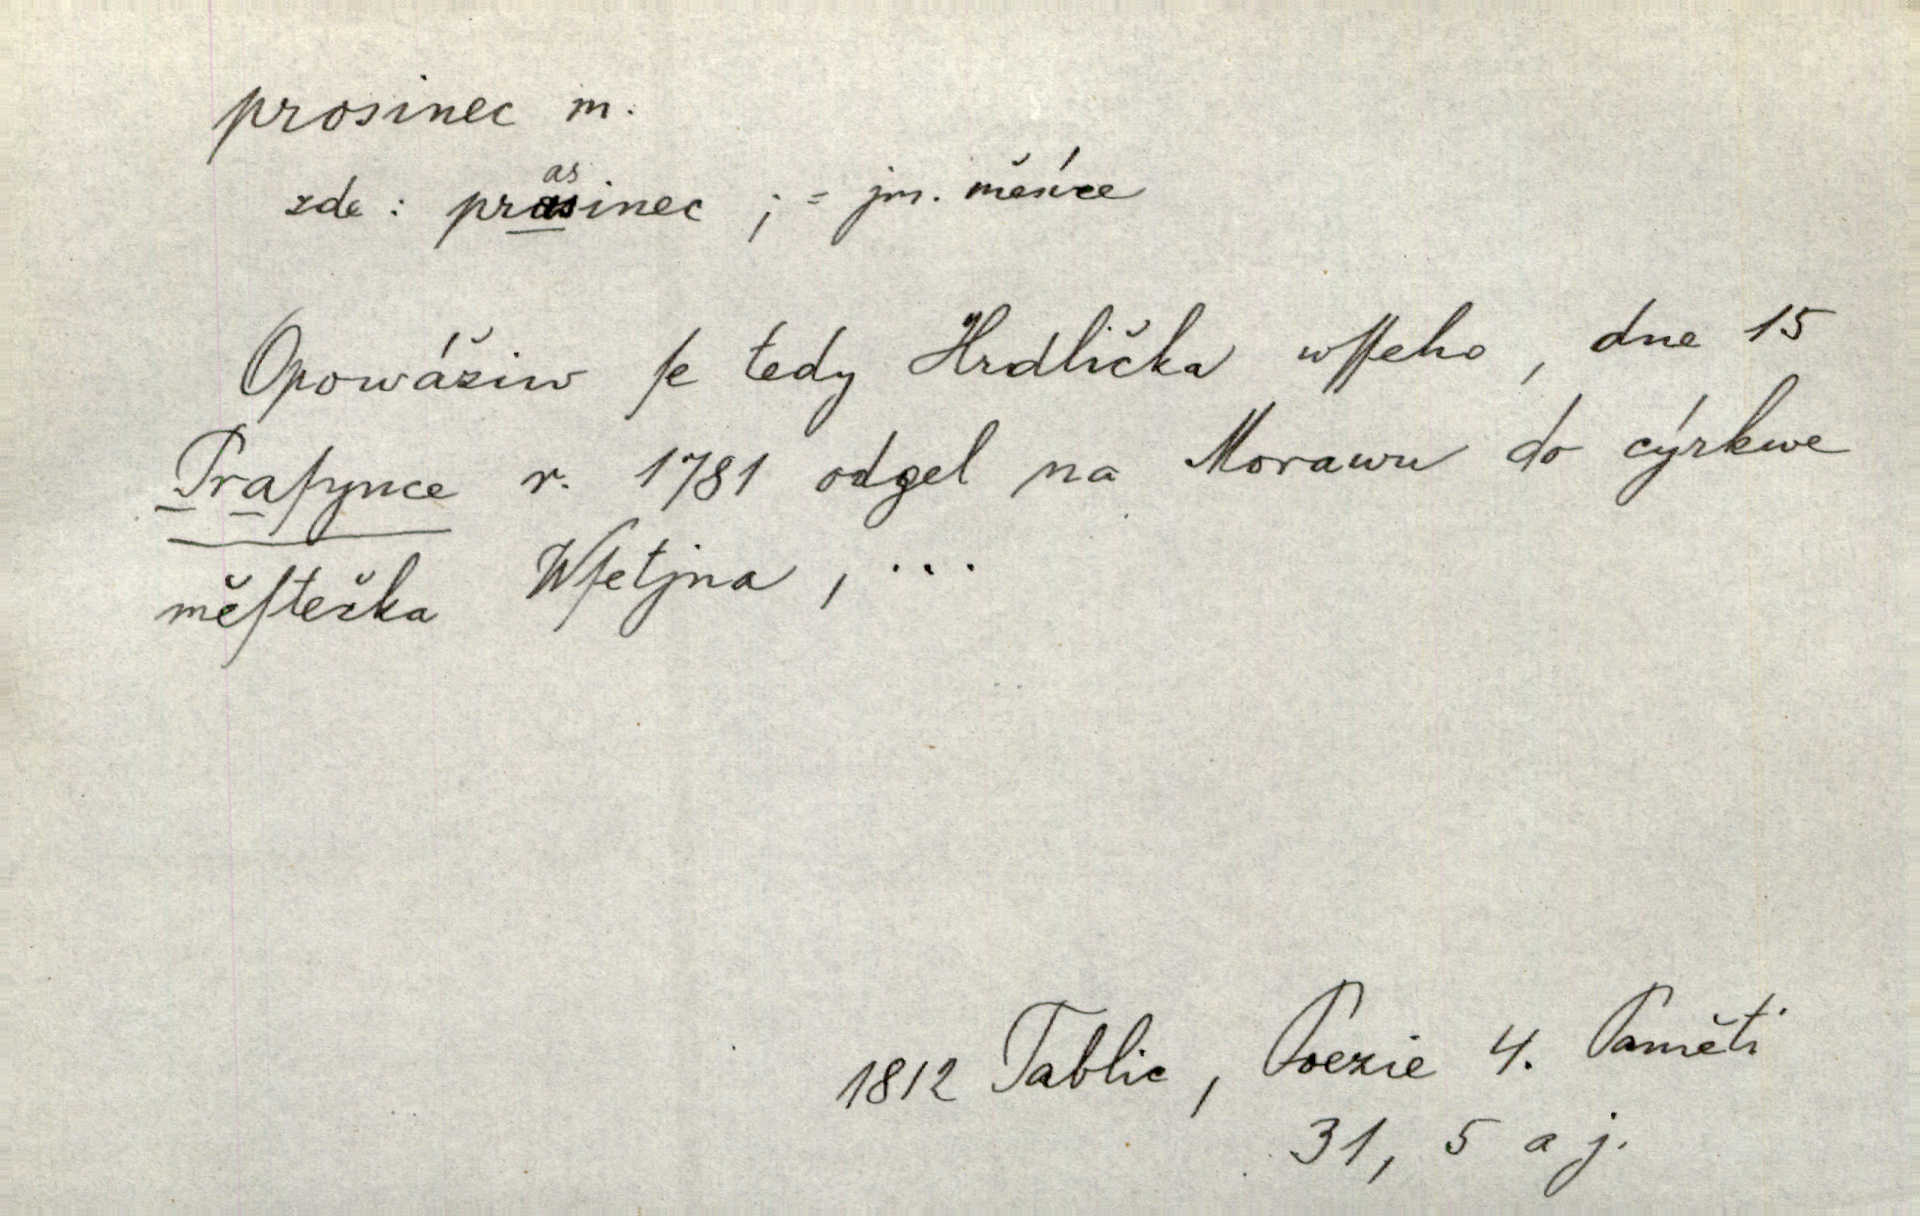 prosinec m.
zde : prasinec ; = jm. měsíce
Opowážiw ſe tedy Hrdlička wſſeho, dne 15
Praſynce r. 1781 odgel na Morawu do cýrkwe
měſtečka Wſetjna, ...
1812 Tablic, Poezie 4. Paměti
31, 5 a j.